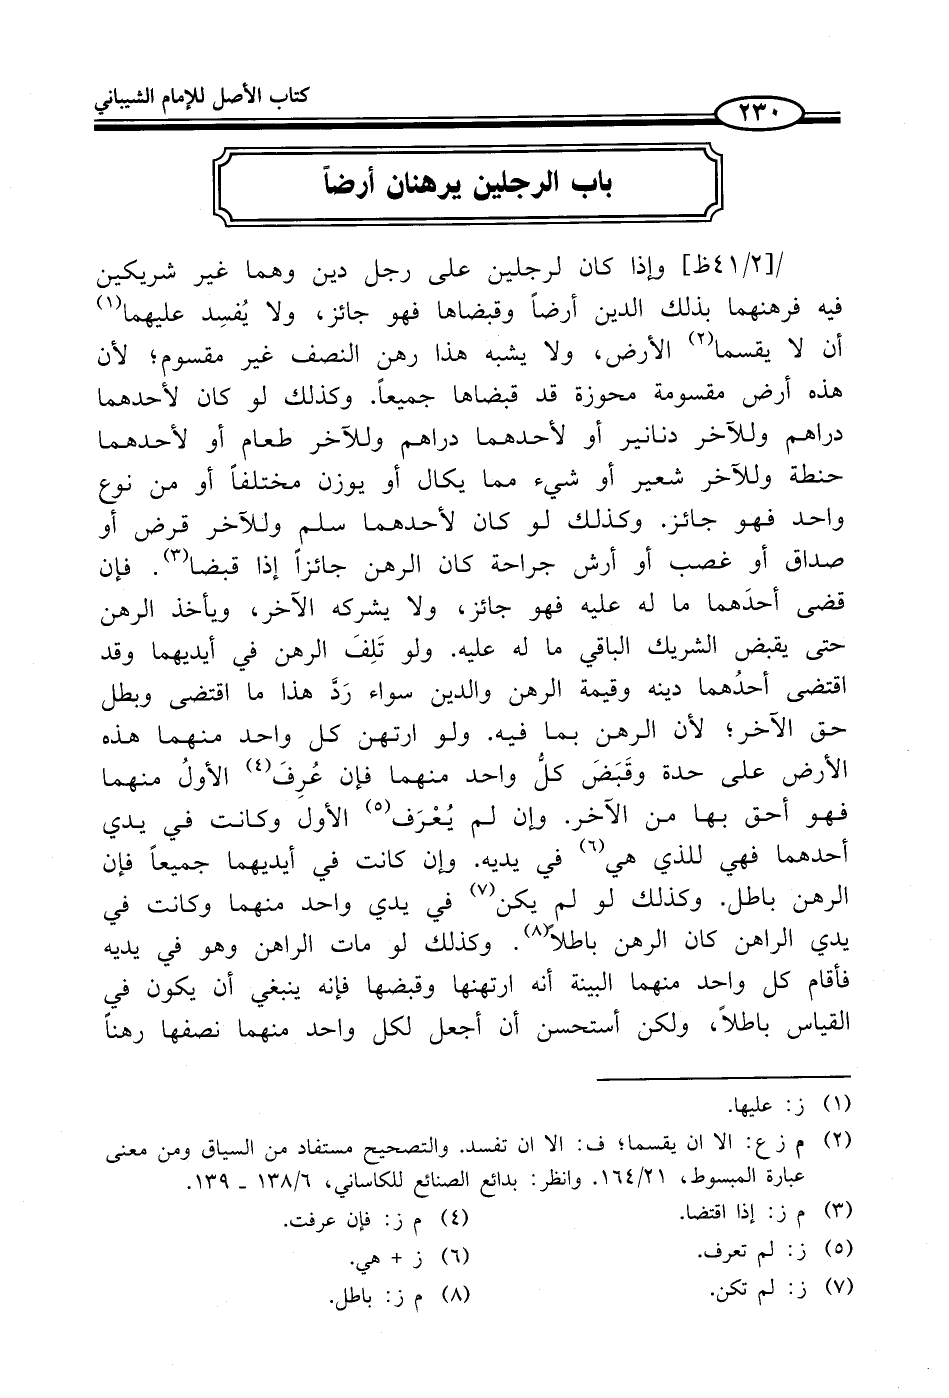 كتاب الأصل للإمام الشيباني
٢٣٠
باب الرجلين يرهنان أرضاً
/[٤١/٢ظ] وإذا كان لرجلين على رجل دين وهما غير شريكين
فيه فرهنهما بذلك الدين أرضاً وقبضاها فهو جائز، ولا يُفسِد عليهما(١)
أن لا يقسما(٢) الأرض، ولا يشبه هذا رهن النصف غير مقسوم؛ لأن
هذه أرض مقسومة محوزة قد قبضاها جميعاً. وكذلك لو كان لأحدهما
دراهم وللآخر دنانير أو لأحدهما دراهم وللآخر طعام أو لأحدهما
حنطة وللآخر شعير أو شيء مما يكال أو يوزن مختلفاً أو من نوع
واحد فهو جائز. وكذلك لو كان لأحدهما سلم وللآخر قرض أو
صداق أو غصب أو أرش جراحة كان الرهن جائزاً إذا قبضا(٣). فإن
قضى أحدَهما ما له عليه فهو جائز، ولا يشركه الآخر، ويأخذ الرهن
حتى يقبض الشريك الباقي ما له عليه. ولو تَلِفَ الرهن في أيديهما وقد
اقتضى أحدُهما دينه وقيمة الرهن والدين سواء رَدَّ هذا ما اقتضى وبطل
حق الآخر؛ لأن الرهن بما فيه. ولو ارتهن كل واحد منهما هذه
الأرض على حدة وقَبَضَ كلُّ واحد منهما فإن عُرِفَ(٤) الأولُ منهما
فهو أحق بها من الآخر. وإن لم يُعْرَف(٥) الأول وكانت في يدي
أحدهما فهي للذي هي(٦) في يديه. وإن كانت في أيديهما جميعاً فإن
الرهن باطل. وكذلك لو لم يكن(٧) في يدي واحد منهما وكانت في
يدي الراهن كان الرهن باطلاً(٨). وكذلك لو مات الراهن وهو في يديه
فأقام كل واحد منهما البينة أنه ارتهنها وقبضها فإنه ينبغي أن يكون في
القياس باطلاً، ولكن أستحسن أن أجعل لكل واحد منهما نصفها رهناً
(١) ز: عليها.
(٢) م ز ع: الا ان يقسما؛ ف: الا ان تفسد. والتصحيح مستفاد من السياق ومن معنى
عبارة المبسوط، ١٦٤/٢١. وانظر: بدائع الصنائع للكاساني، ١٣٨/٦ - ١٣٩.
(٣) م ز: إذا اقتضا. (٤) م ز: فإن عرفت.
(٥) ز: لم تعرف. (٦) ز + هي.
(٧) ز: لم تكن. (٨) م ز: باطل.